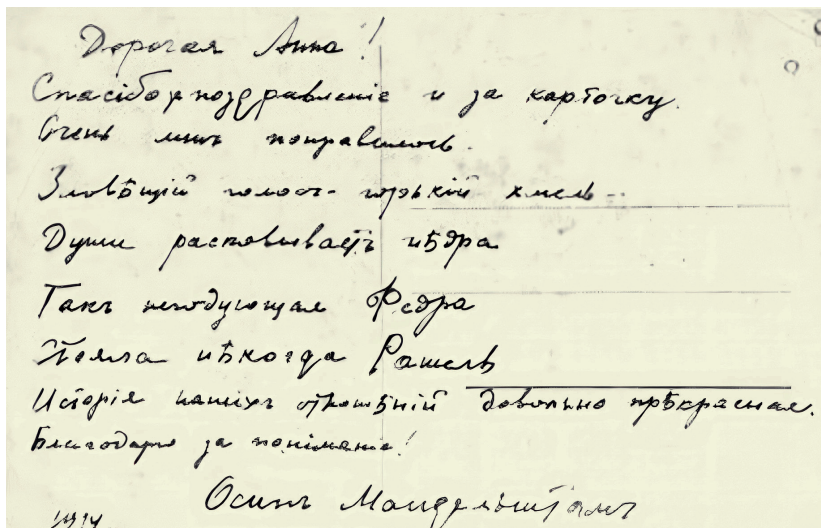 Дорогая Анна!
Спасібо поздравленіе и за карточку.
Очень мнѣ понравилось.
Зловѣщій голосъ - горькій хмель -
Души расковываетъ нѣдра
Такъ негодующая Федра
Стояла нѣкогда Рашель
Исторія нашихъ отношѣній довольно прѣкрасная.
Благодарю за пониманіе!
Осипъ Мандельштамъ
1914.